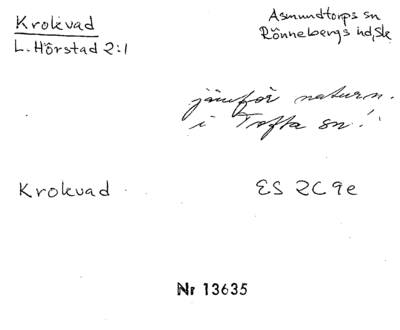 Krokvad
L. Hörstad 2:1
Asmundtorps sn
Rönnebergs hd, Sk
jämför naturn.
i Tofta sn!
Krokvad
ES 2C 9e
Nr 13635